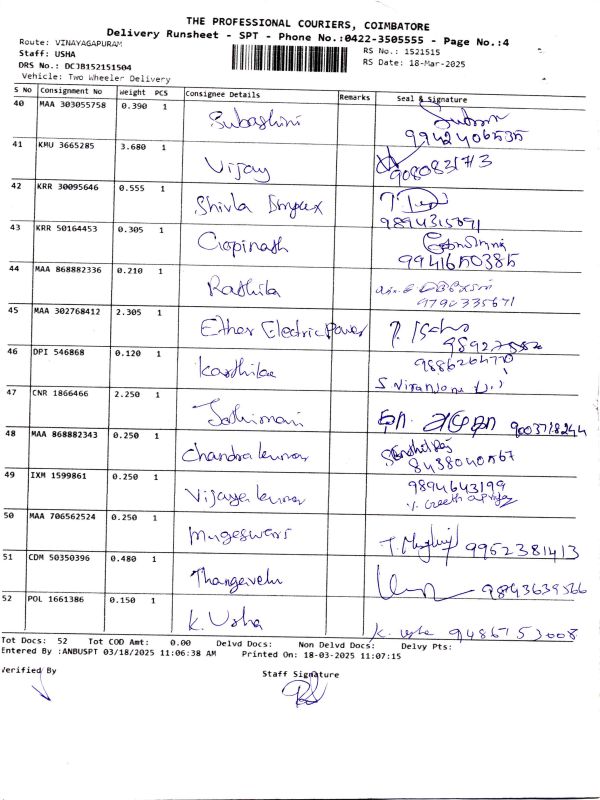 THE PROFESSIONAL COURIERS, COIMBATORE
Delivery Runsheet - SPT - Phone No.:0422-3505555 - Page No.:4
Route: VINAYAGAPURAM
Staff: USHA
DRS No.: DCJB152151504
Vehicle: Two Wheeler Delivery
RS No.: 1521515
RS Date: 18-Mar-2025
S No Consignment No Weight PCS Consignee Details Remarks Seal & Signature
40 MAA 303055758 0.390 1 Subashini
9942406535
41 KMU 3665285 3.680 1 Vijay
9080831713
42 KRR 30095646 0.555 1 Shivla Impex
9894315691
43 KRR 50164453 0.305 1 Gopinath
9941650385
44 MAA 868882336 0.210 1 Rathika
9790335671
45 MAA 302768412 2.305 1 Ether Electric Power
46 DPI 546868 0.120 1 Karthika
47 CNR 1866466 2.250 1 Jothimani
9003718244
48 MAA 868882343 0.250 1 Chandrakumar
8438040567
49 IXM 1599861 0.250 1 Vijayakumar 9894643199
50 MAA 706562524 0.250 1 Mugeswari
9952381413
51 CDM 50350396 0.480 1 Thangavelu
9843639566
52 POL 1661386 0.150 1 K. Usha
K. Usha 9486753008
Tot Docs: 52 Tot COD Amt: 0.00 Delvd Docs: Non Delvd Docs: Delvy Pts:
Entered By :ANBUSPT 03/18/2025 11:06:38 AM Printed On: 18-03-2025 11:07:15
Verified By Staff Signature